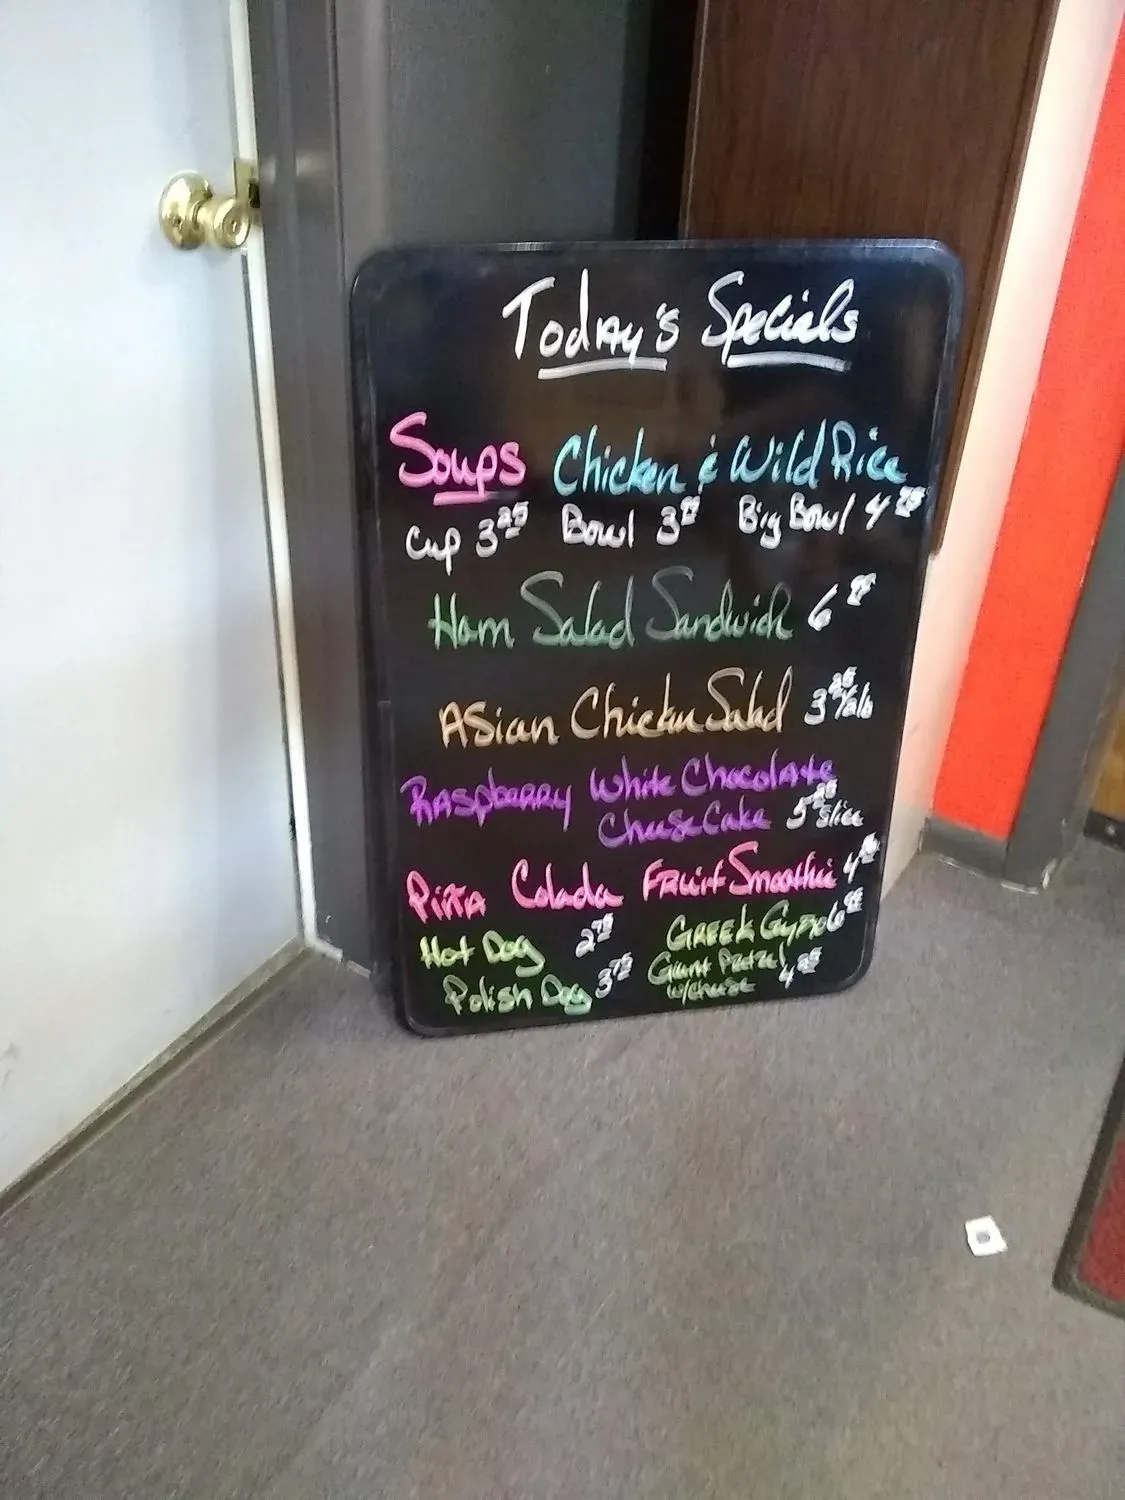 Today's Specials
Soups Chicken & Wild Rice
Cup 3.25 Bowl 3 Big Bowl 4
Ham Salad Sandwich 6
Asian Chicken Salad 3 /lb
Raspberry White Chocolate
Cheese Cake 5 slice
Piña Colada Fruit Smoothie 4
Hot Dog 2.75 Greek Gyro 6
Polish Dog 3.75 Giant Pretzel
w/cheese 4